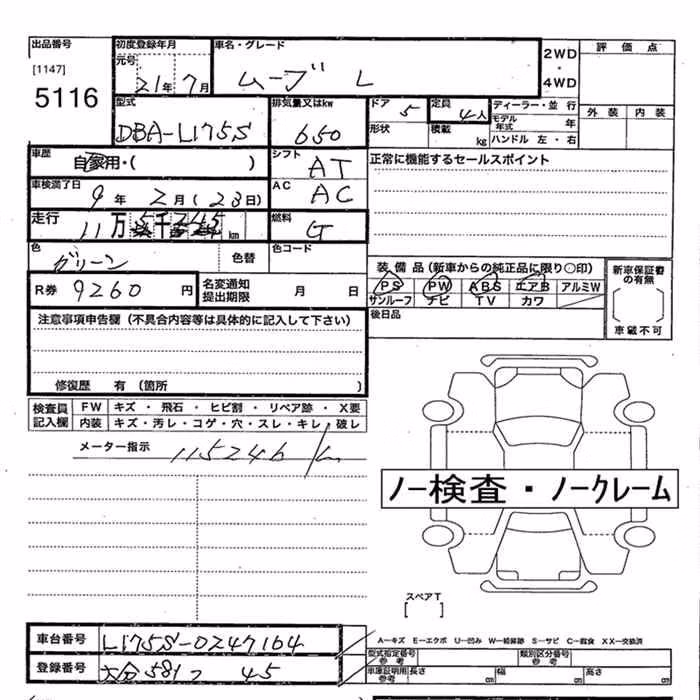 出品番号
[1147]
5116
初度登録年月
元号
21年 7月
車名・グレード
ムーブ L
2WD
・
4WD
評価点
外装 内装
型式
DBA-L175S
排気量又はkw
650
ドア 5
形状
定員 4人
積載 kg
ディーラー・並行
モデル年式 年
ハンドル 左・右
車歴
自家用・( )
シフト
AT
正常に機能するセールスポイント
車検満了日
9年 2月(23日)
AC
AC
走行
11万 5千246 km
燃料
G
色
グリーン
色替
色コード
R券 9260 円
名変通知
提出期限
月 日
装備品(新車からの純正品に限り○印)
PS PW ABS エアB アルミW
サンルーフ ナビ TV カワ
後日品
新車保証書
の有無
車載不可
注意事項申告欄(不具合内容等は具体的に記入して下さい)
修復歴 有(箇所 )
検査員
記入欄
FW キズ・飛石・ヒビ割・リペア跡・X要
内装 キズ・汚レ・コゲ・穴・スレ・キレ・破レ
メーター指示
115246 km
ノー検査・ノークレーム
スペアT
[ ]
A−キズ E−エクボ U−凹み W−補修跡 S−サビ C−腐食 XX−交換済
車台番号 L175S-0247164
登録番号 大分 581 つ 45
型式指定番号
参考
類別区分番号
参考
車庫証明用
参考
長さ cm 幅 cm 高さ cm